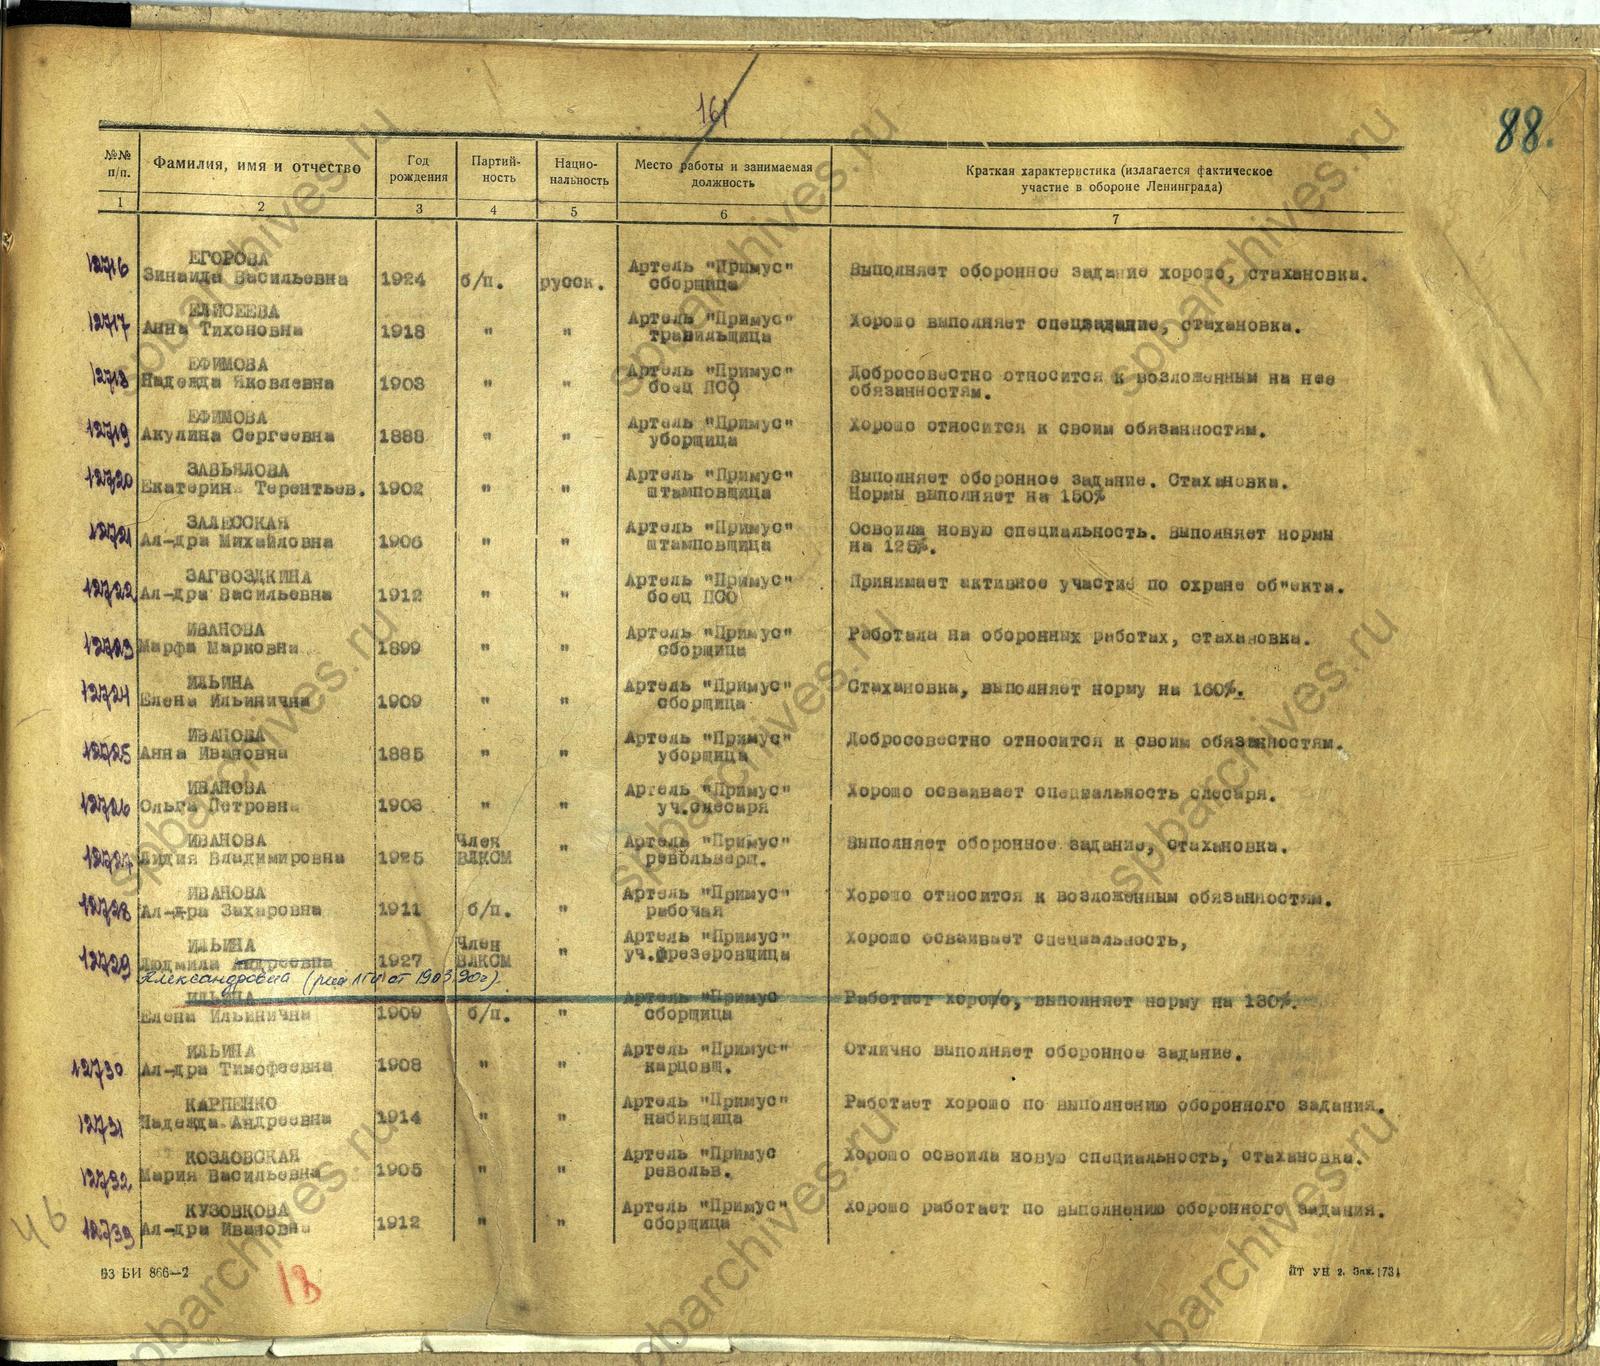 161
88.
№№ п/п.
Фамилия, имя и отчество
Год рождения
Партий-ность
Нацио-нальность
Место работы и занимаемая должность
Краткая характеристика (излагается фактическое участие в обороне Ленинграда)
1 2 3 4 5 6 7
12716 ЕГОРОВА Артель "Примус" Выполняет оборонное задание хорошо, стахановка.
Зинаида Васильевна 1924 б/п. русск. сборщица
12717 ЕЛИСЕЕВА Артель "Примус" Хорошо выполняет спецзадание, стахановка.
Анна Тихоновна 1918 " " травильщица
12718 ЕФИМОВА Артель "Примус" Добросовестно относится к возложенным на нее
Надежда Яковлевна 1903 " " боец ПСО обязанностям.
12719 ЕФИМОВА Артель "Примус" Хорошо относится к своим обязанностям.
Акулина Сергеевна 1888 " " уборщица
12720 ЗАВЬЯЛОВА Артель "Примус" Выполняет оборонное задание. Стахановка.
Екатерина Терентьев. 1902 " " штамповщица Нормы выполняет на 150%
12721 ЗАЛЕССКАЯ Артель "Примус" Освоила новую специальность. Выполняет нормы
Ал-дра Михайловна 1906 " " штамповщица на 125%.
12722 ЗАГВОЗДКИНА Артель "Примус" Принимает активное участие по охране об"екта.
Ал-дра Васильевна 1912 " " боец ПСО
12723 ИВАНОВА Артель "Примус" Работала на оборонных работах, стахановка.
Марфа Марковна 1899 " " сборщица
12724 ИЛЬИНА Артель "Примус" Стахановка, выполняет норму на 160%.
Елена Ильинична 1909 " " сборщица
12725 ИВАНОВА Артель "Примус" Добросовестно относится к своим обязанностям.
Анна Ивановна 1885 " " уборщица
12726 ИВАНОВА Артель "Примус" Хорошо осваивает специальность слесаря.
Ольга Петровна 1903 " " уч.слесаря
12727 ИВАНОВА Член " Артель "Примус" Выполняет оборонное задание, стахановка.
Лидия Владимировна 1925 ВЛКОМ револьверщ.
12728 ИВАНОВА Артель "Примус" Хорошо относится к возложенным обязанностям.
Ал-дра Захаровна 1911 б/п. " рабочая
12729 ИЛЬИНА Член " Артель "Примус" Хорошо осваивает специальность,
Людмила Андреевна 1927 ВЛКОМ уч.фрезеровщица
Александровна
ИЛЬИНА Артель "Примус Работает хорошо, выполняет норму на 130%.
Елена Ильинична 1909 б/п. " сборщица
12730 ИЛЬИНА Артель "Примус" Отлично выполняет оборонное задание.
Ал-дра Тимофеевна 1908 " " карцовщ.
12731 КАРПЕНКО Артель "Примус" Работает хорошо по выполнению оборонного задания.
Надежда Андреевна 1914 " " набивщица
12732 КОЗЛОВСКАЯ Артель "Примус Хорошо освоила новую специальность, стахановка.
Мария Васильевна 1905 " " револьв.
12733 КУЗОВКОВА Артель "Примус" Хорошо работает по выполнению оборонного задания.
Ал-дра Ивановна 1912 " " сборщица
46
93 БИ 866—2
18
spbarchives.ru